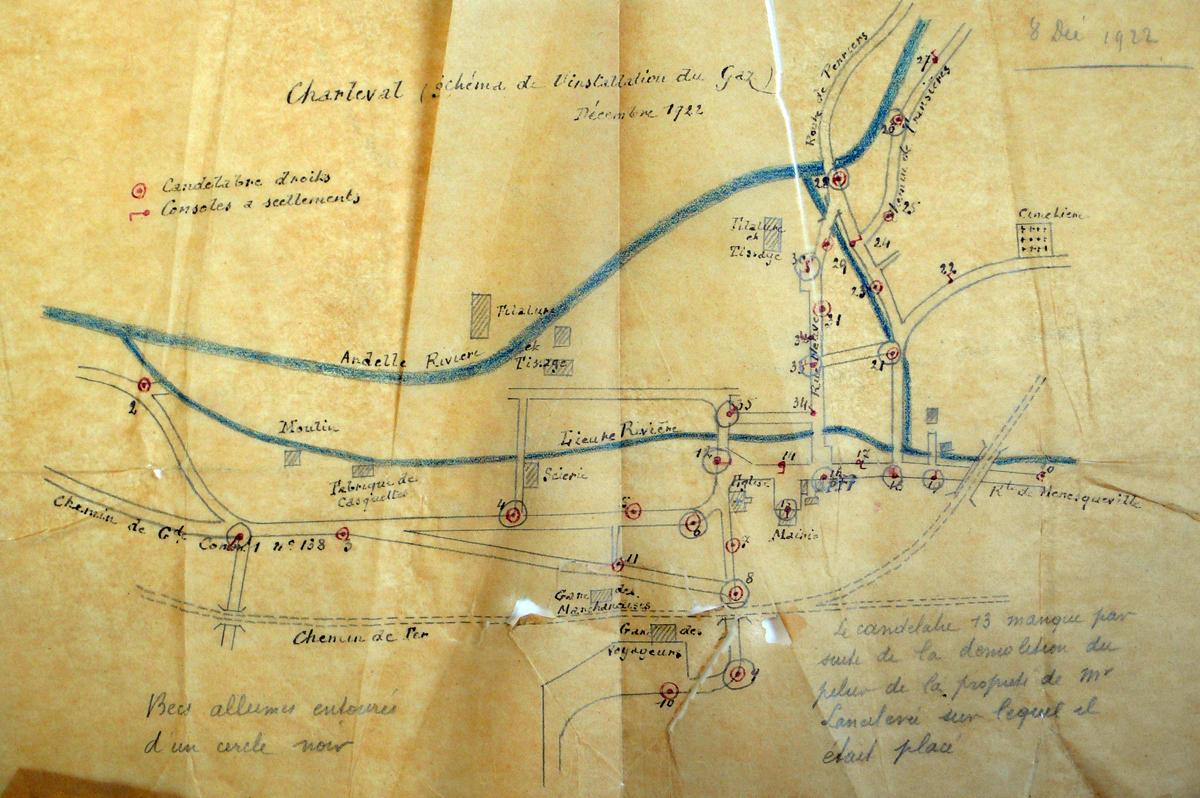 8 Déc 1922
Charleval (Schéma de l'installation du Gaz)
Décembre 1922
Candelabre droits
Consoles a scellements
Route de Perriers
Chemin de Transières
27
26
28
25
Cimetière
Filature
et
Tissage
24
29
30
22
23
Filature
et
Tissage
31
Andelle Rivière
32
Rue Neuve
33
21
2
35
34
Moulin
Lieure Rivière
12
14
17
Fabrique de
Casquettes
Scierie
Eglise
16
18
19
20
Rte de Menesqueville
Chemin de Gde Comon 1 nº 138
3
4
5
6
15
Mairie
7
11
8
Gare des
Marchandises
Chemin de Fer
Gare des
Voyageurs
9
10
Le candelabre 13 manque par
suite de la demolition du
pilier de la propriété de Mr
était placé
sur lequel il
Becs allumés entourés
d'un cercle noir